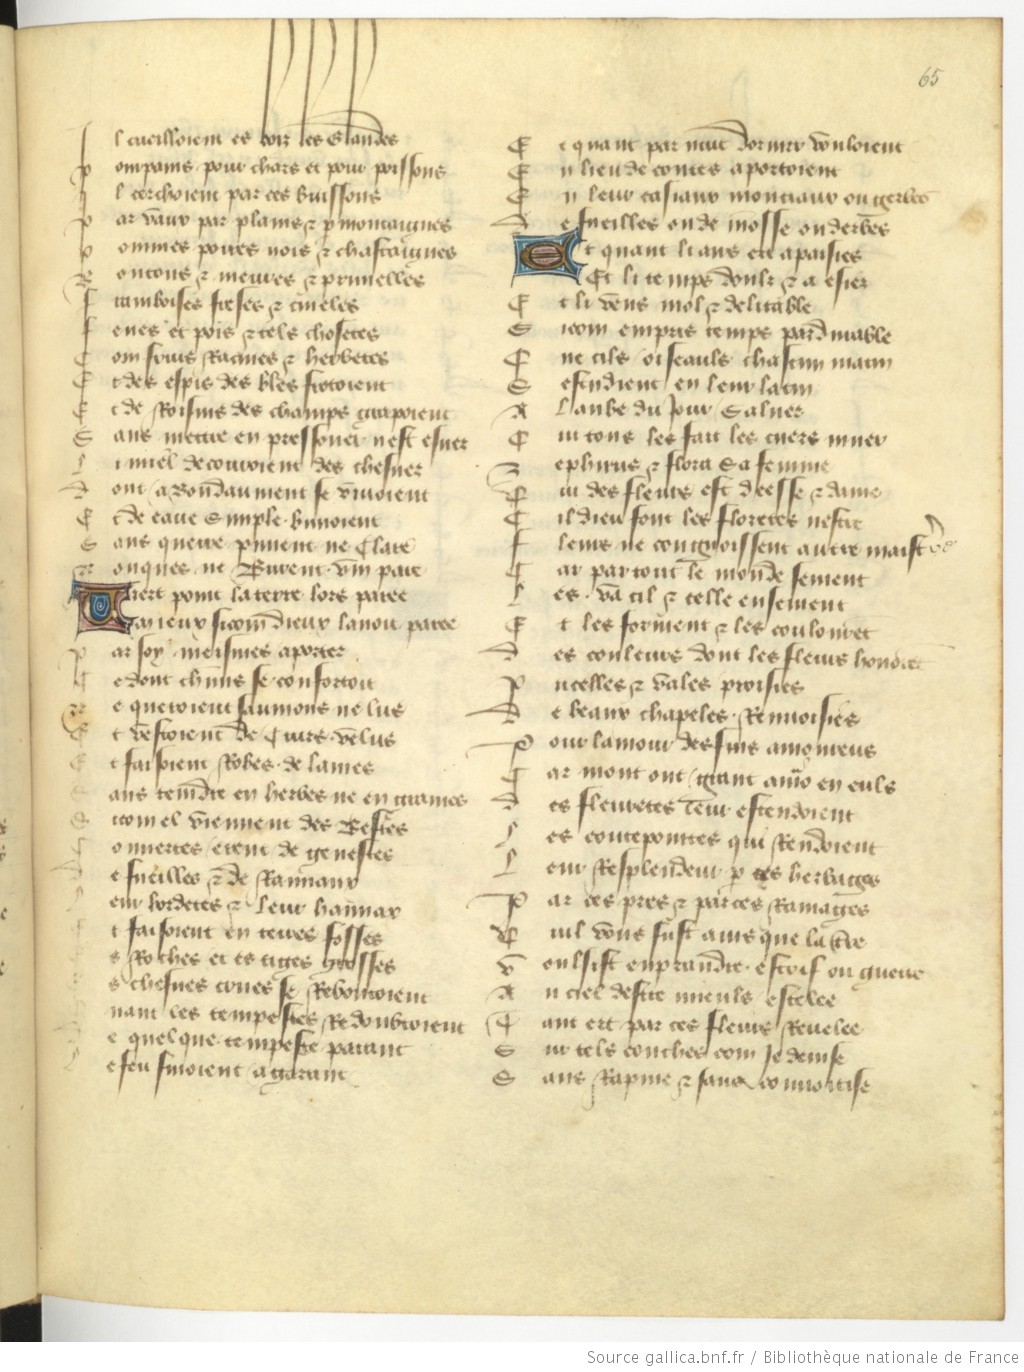 65
Il cueilloient es bois les glandes
Pompains pour chars et pour poissons
Il cerchoient par ces buissons
Par vaux par plains ⁊ p montaignes
Pommes poires nois ⁊ chastaignes
Boutons ⁊ meures ⁊ prunelles
Framboises freses ⁊ cineles
Feves et pois ⁊ tels chosetes
Com fruis racines ⁊ herbetes
Et des espis des bles frotoient
Et de roisins des champs grapoient
Sans mettre en pressouer nest esuer
Li miel decouroient des chesner
Dont abondaument se vivoient
Et de eaue simple buvoient
Sans querre piment ne clare
Nonques ne burent vin pare
Niert point la terre lors paree
Mais ieux si com dieux lavoit paree
Par soy meismes aporter
Ce dont chūns se confortoit
Ne queroient saumons ne lus
Et vestoient de cuirs velus
Et faisoient robes de laines
Sans teindre en herbes ne en graines
Si com el viennent des bestes
Couvertes erent de genestes
De fueilles ⁊ de ramiaux
Leur bordetes ⁊ leur hamiax
Et faisoient en terres fosses
Es roches et es tiges grosses
Des chesnes creues se reboutoient
Quant les tempestes redoubtoient
De quelque tempeste parant
Se fen fuioient a garant
Et quant par nuit dormir vouloient
En lieu de coutes aportoient
En leur casiaux monciaux ou gerbes
De fueilles ou de mosse ou derbes
Et quant li airs ert apaisies
Et li temps doulz ⁊ aesiez
Et li vens mol ⁊ delitable
Si com en pris temps pardurable
Que cils oiseauls chascun matin
Sestudient en leur latin
A laube du jour saluer
Qui tous les fait les cuers muer
Zephirus ⁊ flora sa femme
Qui des fleurs est deesse ⁊ dame
Cil dieu font les floretes nestre
Fleurs ne congnoissent autre maistre
Car par tout le monde semant
Les va cil ⁊ celle ensement
Et les forment ⁊ les coulourent
Des couleurs dont les fleurs honorent
Pucelles ⁊ vales proisies
De beaux chapeles renvoisies
Pour lamour des fins amoureus
Car mont ont grant amo en euls
De fleuretes leur estendoient
Les coutepointes qui rendoient
Leur resplendeur p ces herbages
Par ces pres ⁊ par ces ramages
Quil vous fust avis que la tre
Voulsist enprandre estrif ou guerre
Au ciel destre mieuls estelee
Tant ert par ces fleurs revelee
Sur tels couches com je devise
Sans rapine ⁊ sans convoitise
Source gallica.bnf.fr / Bibliothèque nationale de France